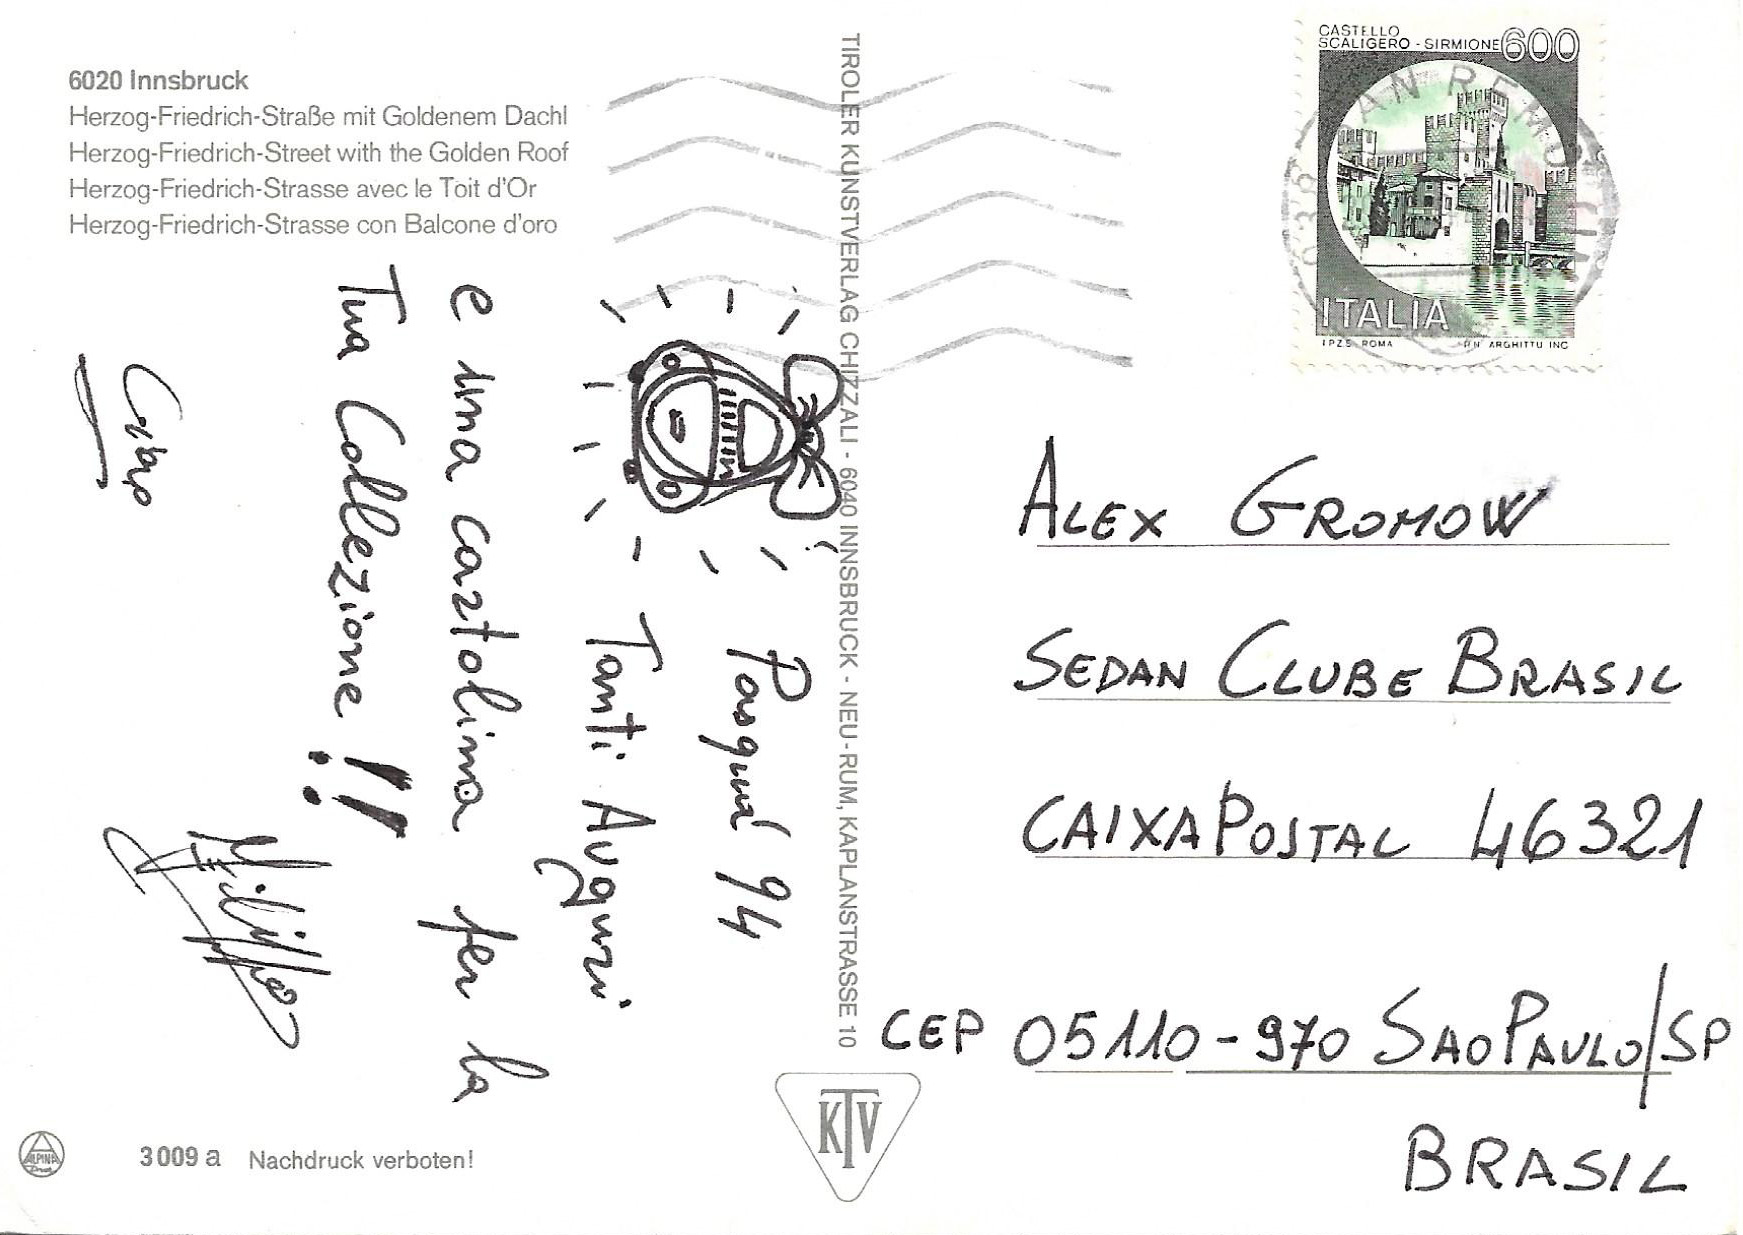 6020 Innsbruck
Herzog-Friedrich-Straße mit Goldenem Dachl
Herzog-Friedrich-Street with the Golden Roof
Herzog-Friedrich-Strasse avec le Toit d'Or
Herzog-Friedrich-Strasse con Balcone d'oro
TIROLER KUNSTVERLAG CHIZZALI - 6040 INNSBRUCK - NEU-RUM, KAPLANSTRASSE 10
CASTELLO
SCALIGERO - SIRMIONE 600
ITALIA
I.P.Z.S. ROMA
ARGHITTU INC
SAN REMO
Pasqua 94
Tanti Auguri
e una cartolina per la
Tua Collezione!!
Ciao
ALEX GROMOW
SEDAN CLUBE BRASIL
CAIXA POSTAL 46321
CEP 05110-970 SAO PAULO/SP
BRASIL
KTV
ALPINA
3009 a Nachdruck verboten!